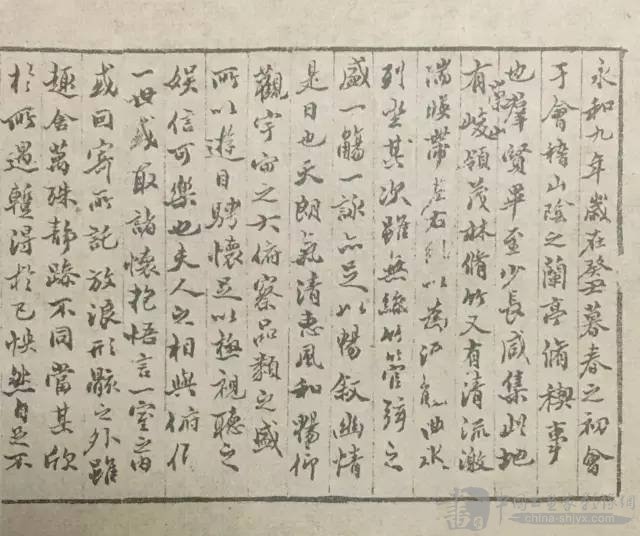 永和九年歲在癸丑暮春之初會
于會稽山陰之蘭亭脩稧事
也羣賢畢至少長咸集此地
有崇山峻領茂林脩竹又有清流激
湍暎帶左右引以為流觴曲水
列坐其次雖無絲竹管弦之
盛一觴一詠亦足以暢敘幽情
是日也天朗氣清惠風和暢仰
觀宇宙之大俯察品類之盛
所以遊目騁懷足以極視聽之
娛信可樂也夫人之相與俯仰
一世或取諸懷抱悟言一室之內
或因寄所託放浪形骸之外雖
趣舍萬殊靜躁不同當其欣
於所遇蹔得於己怏然自足不
china-shjyx.com